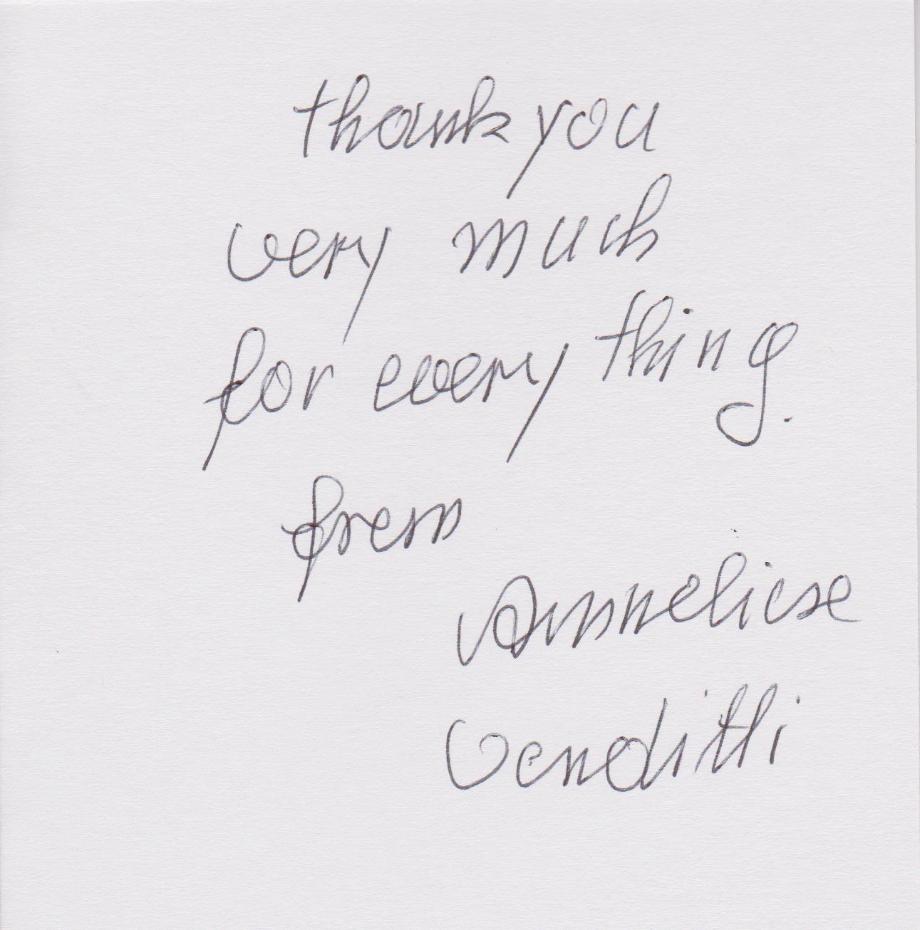 thank you
very much
for every thing.
from
Anneliese
Venditti